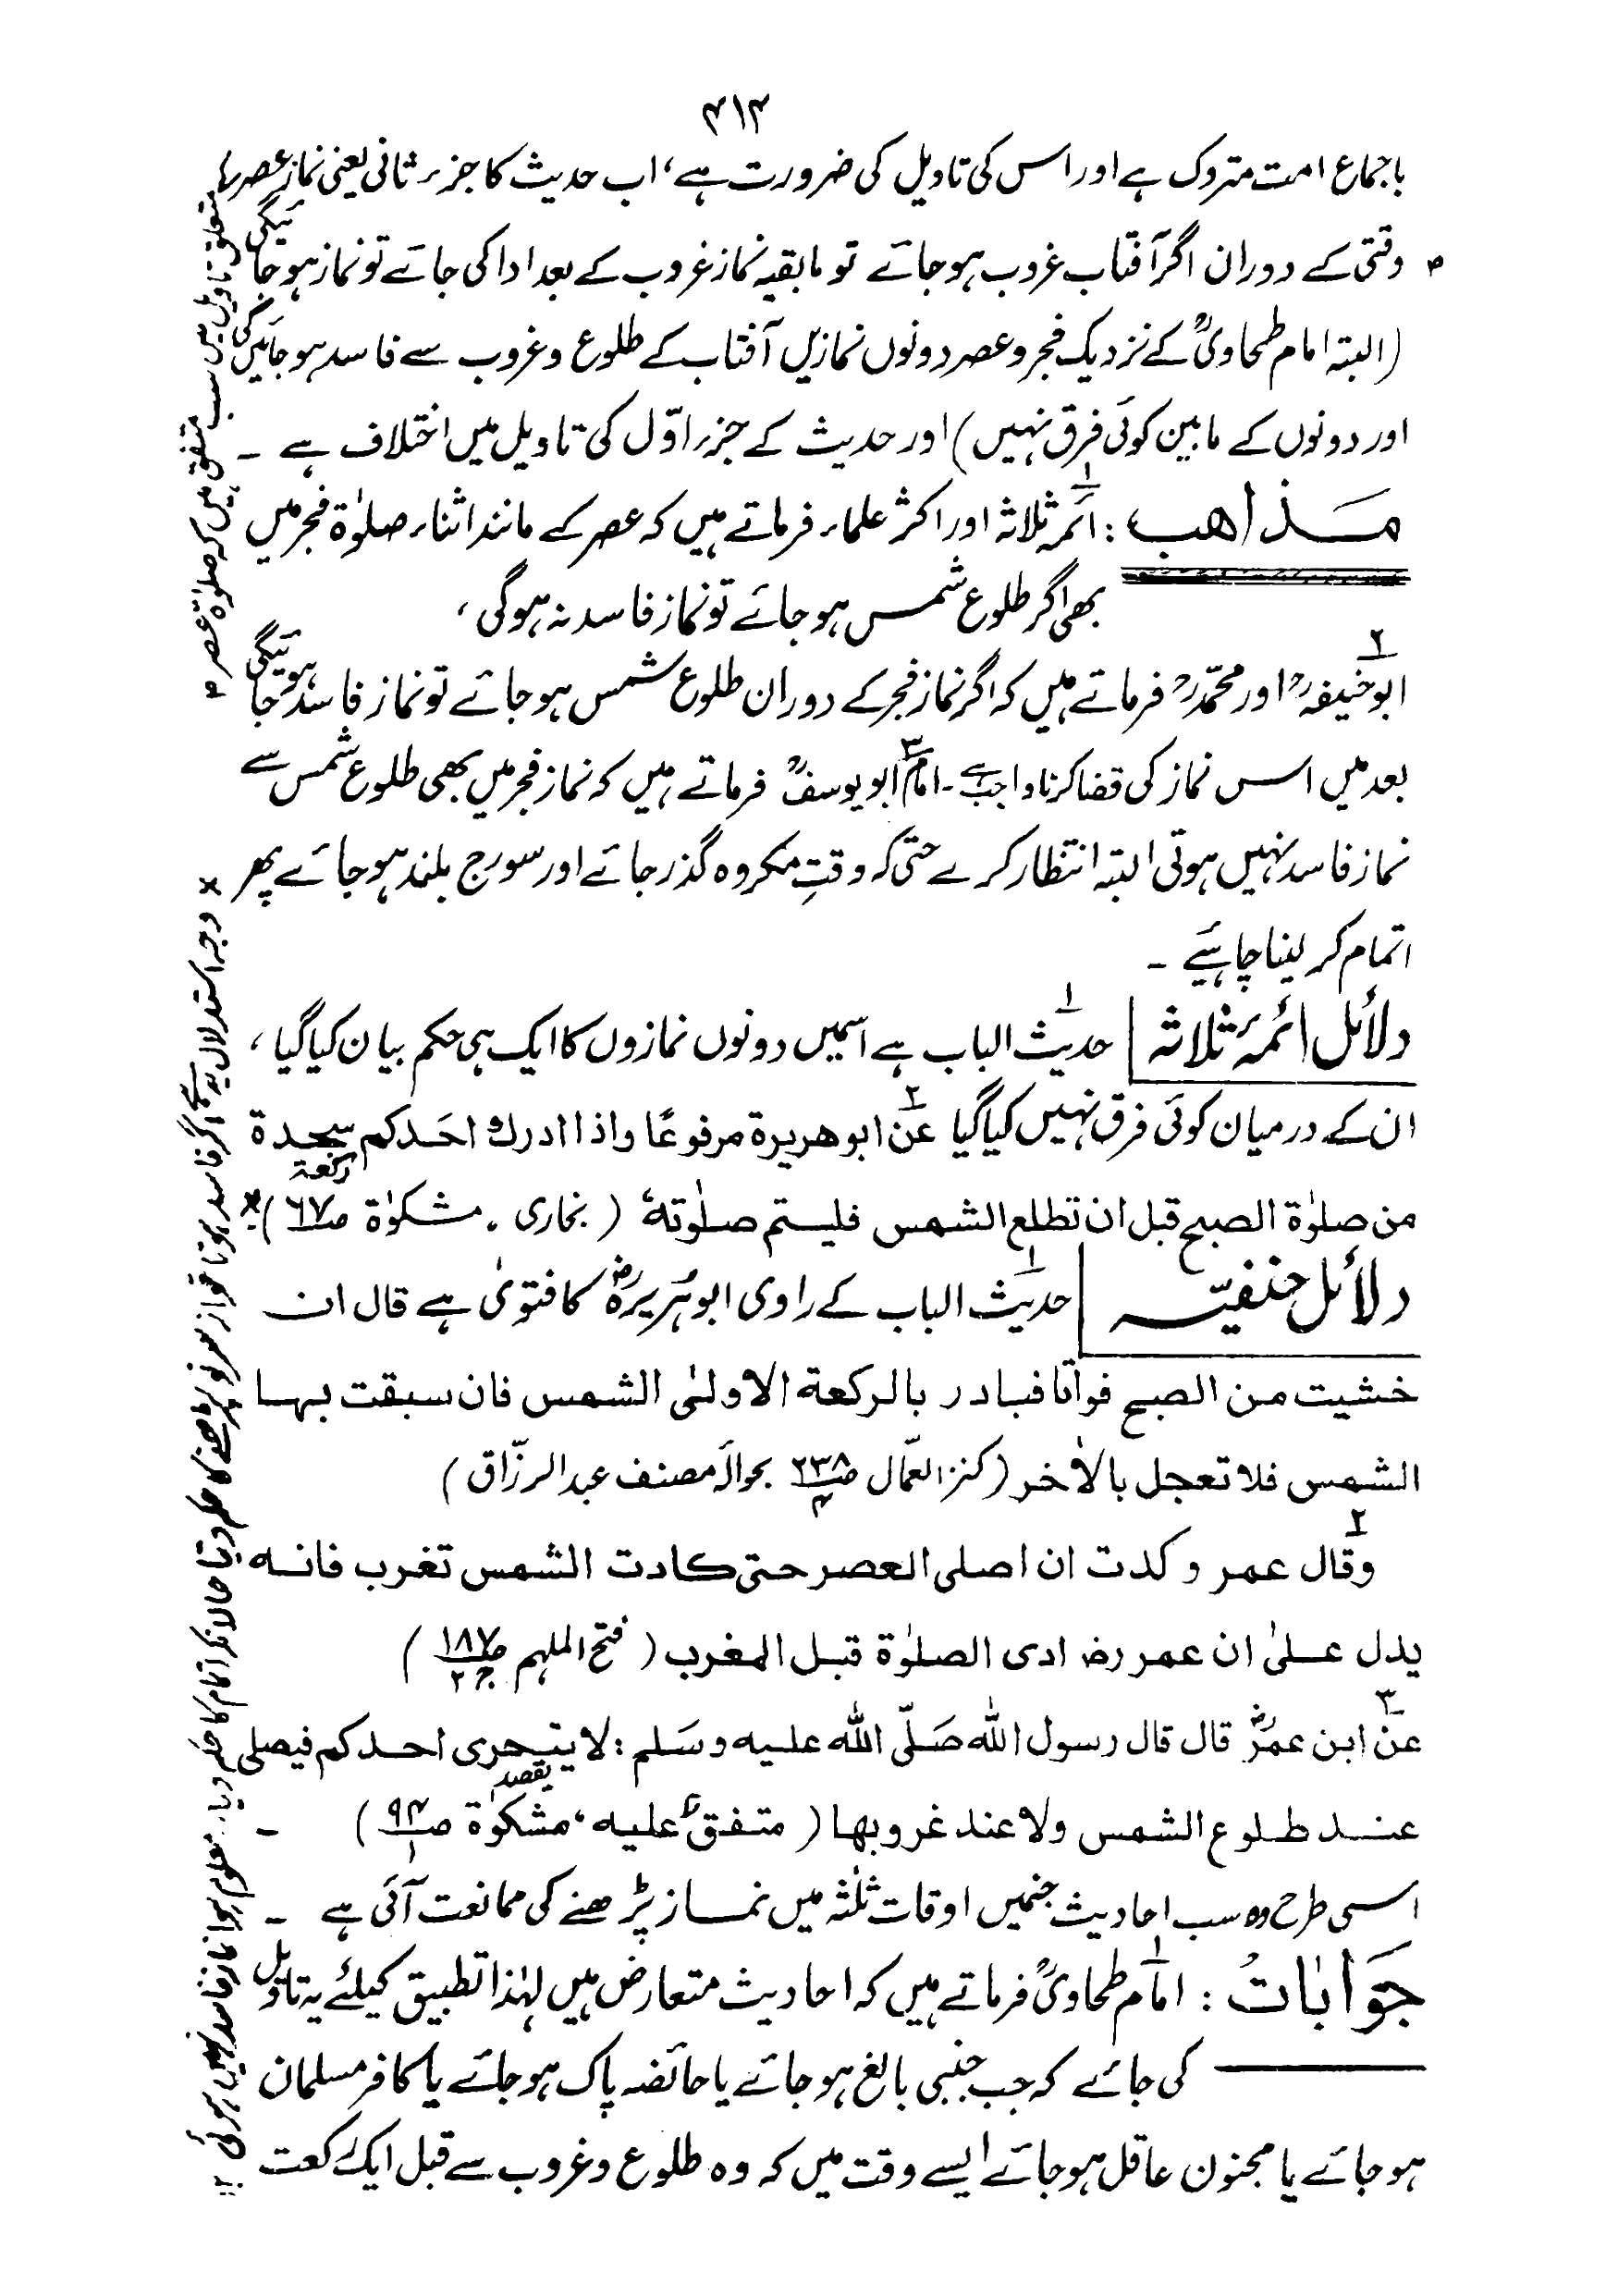 ۴۱۴
باجماع امت متروک ہے اور اس کی تاویل کی ضرورت ہے، اب حدیث کا جزء ثانی یعنی نماز عصر کے
متعلق تاویل میں سب متفق ہیں کہ صلوٰۃ عصر ۴
۴ وقتی کے دوران اگر آفتاب غروب ہوجائے تو مابقیہ نماز غروب کے بعد ادا کی جائے تو نماز ہوجائیگی
(البتہ امام طحاویؒ کے نزدیک فجر و عصر دونوں نمازیں آفتاب کے طلوع و غروب سے فاسد ہوجائیں گی
اور دونوں کے مابین کوئی فرق نہیں) اور حدیث کے جزء اوّل کی تاویل میں اختلاف ہے ۔
مذاھب : ۱ ائمہ ثلاثہ اور اکثر علماء فرماتے ہیں کہ عصر کے مانند اثناء صلوٰۃ فجر میں
بھی اگر طلوع شمس ہوجائے تو نماز فاسد نہ ہوگی ،
۲ ابوحنیفہؒ اور محمدؒ فرماتے ہیں کہ اگر نماز فجر کے دوران طلوع شمس ہوجائے تو نماز فاسد ہوجائیگی
بعد میں اس نماز کی قضا کرنا واجب ہے ۔ ۳ امام ابو یوسفؒ فرماتے ہیں کہ نماز فجر میں بھی طلوع شمس سے
نماز فاسد نہیں ہوتی البتہ انتظار کرے حتی کہ وقتِ مکروہ گذر جائے اور سورج بلند ہوجائے پھر
اتمام کرلینا چاہئیے ۔
دلائل ائمۂ ثلاثہ ۱ حدیث الباب ہے اسمیں دونوں نمازوں کا ایک ہی حکم بیان کیا گیا ،
ان کے درمیان کوئی فرق نہیں کیا گیا ۲ عن ابوھریرۃ مرفوعًا واذا ادرک احَدکم سجدۃ
رکعۃ
من صلوٰۃ الصبح قبل ان تطلع الشمس فلیستم صلوٰتہٗ (بخاری ، مشکوٰۃ ص۶۷) ×
× وجہ استدلال یہ ہے اگر فاسد ہوتا تو از سر نو پڑھنے کا حکم دیتا حالانکہ اتمام کا حکم دیا، معلوم ہوا نماز فاسد نہیں ہوئی ۱۲
دلائل حنفیہ ۱ حدیث الباب کے راوی ابوہریرہؓ کا فتویٰ ہے قال ان
خشیت من الصبح فواتا فبادر بالرکعة الاولیٰ الشمس فان سبقت بہا
الشمس فلا تعجل بالاٰخر (کنز العمّال ص۲۳۸ ج۴ بحوالہ مصنف عبد الرزّاق)
۲ وقال عمر و کدت ان اصلی العصر حتی کادت الشمس تغرب فانہ
یدل علیٰ ان عمر رض ادی الصلوٰۃ قبل المغرب (فتح الملہم ص۱۸۷ ج۲)
۳ عن ابن عمرؓ قال قال رسول اللہ صَلّی اللہ علیہ وسَلم : لا یتحری احدکم فیصلی
یقصد
عند طلوع الشمس ولا عند غروبھا (متفق علیہ، مشکوٰۃ ص۹۴ ج۱) ۔
اسی طرح وہ سب احادیث جنمیں اوقات ثلثہ میں نماز پڑھنے کی ممانعت آئی ہے ۔
جَوابات : ۱ امام طحاویؒ فرماتے ہیں کہ احادیث متعارض ہیں لہٰذا تطبیق کیلئے یہ تاویل
کی جائے کہ جب جنبی بالغ ہوجائے یا حائضہ پاک ہوجائے یا کافر مسلمان
ہوجائے یا مجنون عاقل ہوجائے ایسے وقت میں کہ وہ طلوع و غروب سے قبل ایک رکعت